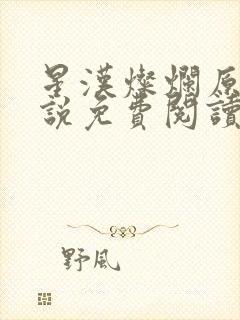 星漢燦爛原
說免費閱讀
野風